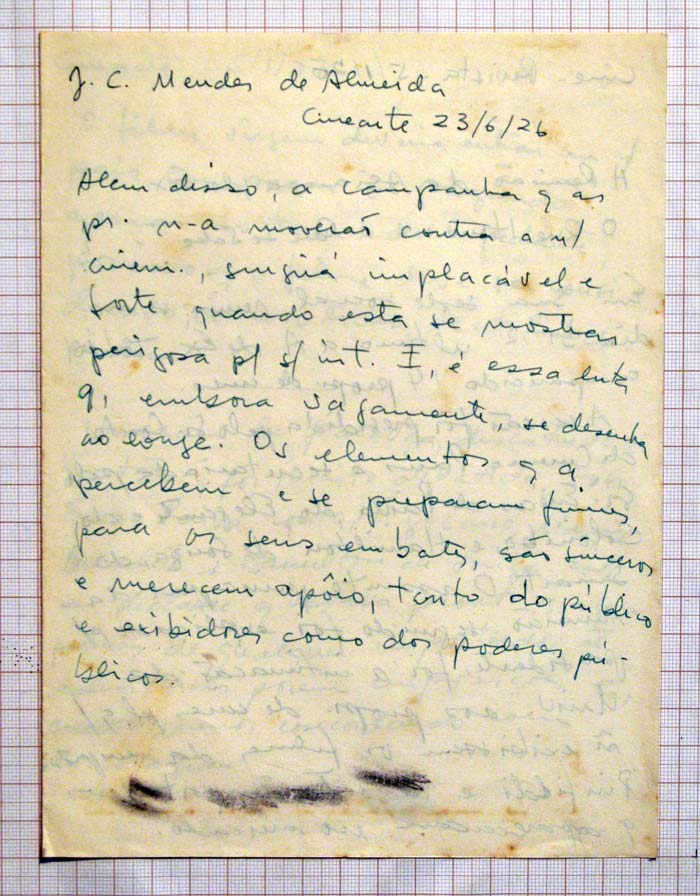 J. C. Mendes de Almeida
Cinearte 23/6/26
Alem disso, a campanha q as
pr. n-a moverás contra a n/
cinem., surgirá implacável e
forte quando esta se mostrar
perigosa p/ s/ int. E, é essa luta
q, embora vagamente, se desenha
ao longe. Os elementos q a
percebem e se preparam firmes,
para os seus embates, são sinceros
e merecem apôio, tanto do público
e exibidores como dos poderes pú-
blicos.